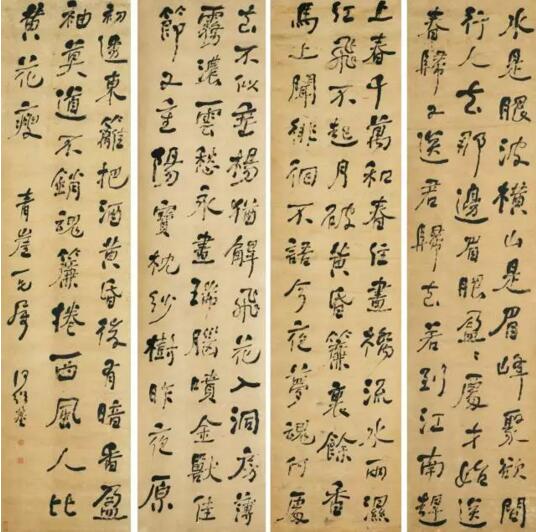 水是眼波橫山是眉峰聚欲問
行人去那邊眉眼盈盈處才始送
春歸又送君歸去若到江南趕
上春千萬和春住畫橋流水雨濕
紅飛不起月破黃昏簾裏餘香
馬上聞徘徊不語今夜夢魂何處
去不似垂楊猶解飛花入洞房薄
霧濃雲愁永晝瑞腦噴金獸佳
節又重陽寶枕紗昨夜
初透東籬把酒黃昏後有暗香盈
袖莫道不銷魂簾捲西風人比
黃花瘦 青崖屬 何紹基